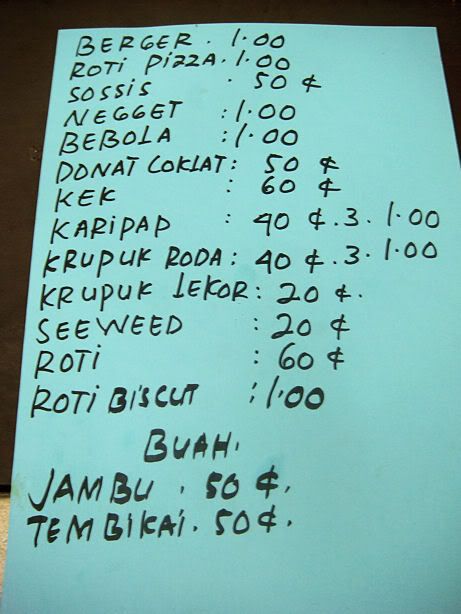 BERGER. 1.00
ROTI PIZZA. 1.00
SOSSIS . 50 ¢
NEGGET : 1.00
BEBOLA : 1.00
DONAT COKLAT: 50 ¢
KEK : 60 ¢
KARIPAP : 40 ¢. 3. 1.00
KRUPUK RODA: 40 ¢. 3. 1.00
KRUPUK LEKOR: 20 ¢.
SEEWEED : 20 ¢
ROTI : 60 ¢
ROTI BISCUT : 1.00
BUAH.
JAMBU . 50 ¢.
TEMBIKAI. 50 ¢.